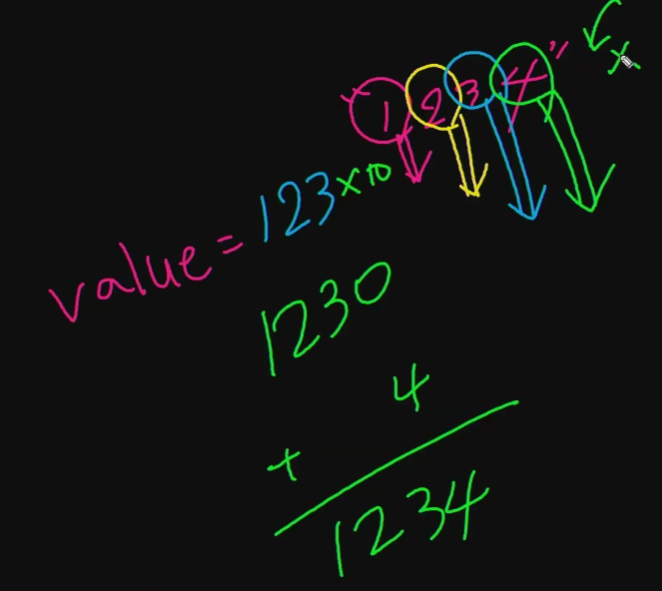 "1234"
value = 123 × 10
1230
4
+
1234